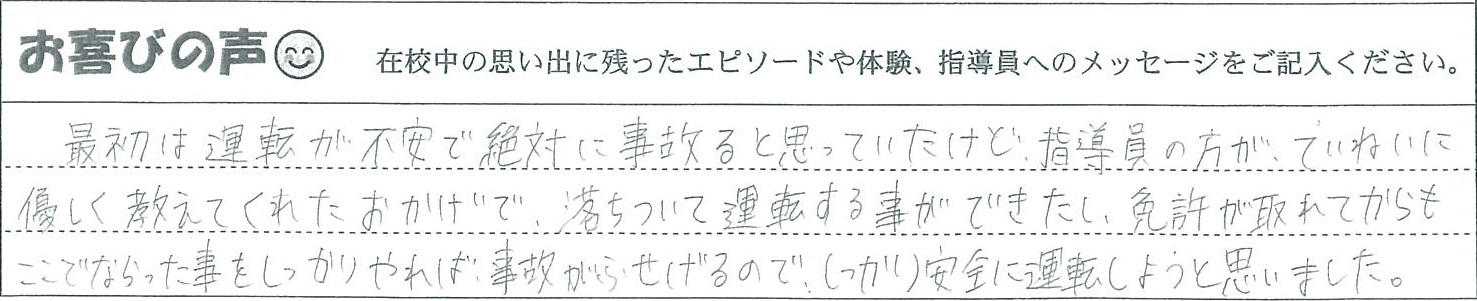 お喜びの声 在校中の思い出に残ったエピソードや体験、指導員へのメッセージをご記入ください。
最初は運転が不安で絶対に事故ると思っていたけど、指導員の方が、ていねいに
優しく教えてくれたおかげで、落ちついて運転する事ができたし、免許が取れてからも
ここでならった事をしっかりやれば、事故がふせげるので、しっかり安全に運転しようと思いました。